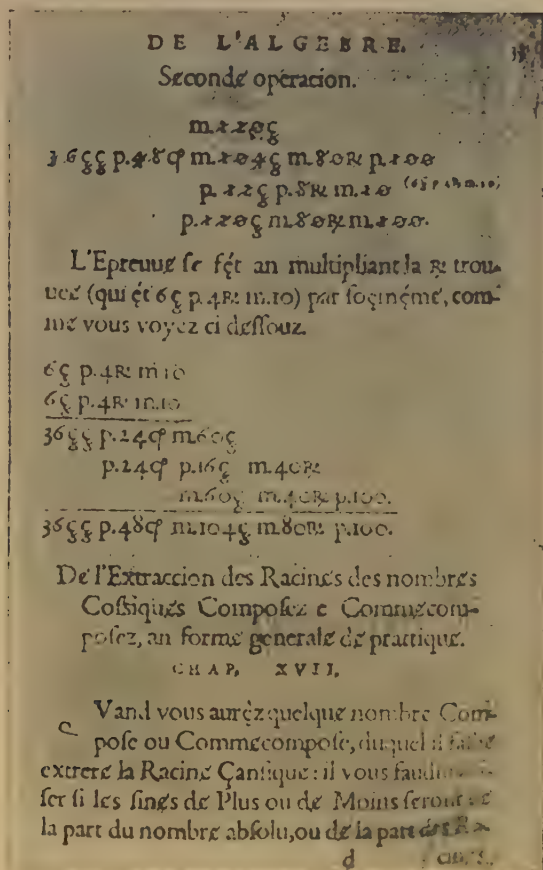 DE L'ALGEBRE.
Seconde operacion.
m.120ç
36çç p.48cf m.104ç m.80R p.100
p.12ç p.8R m.10 (6ç p.4R m.10)
p.120ç m.80R m.100.
L'Epreuue se fęt an multipliant la R trou-
uee (qui ęt 6ç p.4R m.10) par soęmęmé, com-
me vous voyez ci dessouz.
6ç p.4R m.10
6ç p.4R m.10
36çç p.24cf m.60ç
p.24cf p.16ç m.40R
m.60ç m.40R p.100.
36çç p.48cf m.104ç m.80R p.100.
De l'Extraccion des Racines des nombres
Cossiques Composez e Commecom-
posez, an forme generale de prattique.
CHAP. XVII.
Vand vous aurez quelque nombre Com-
pose ou Commecompose, duquel il
extrere la Racine Çansique: il vous
ser si les sines de Plus ou de Moins seront
la part du nombre absolu, ou de la part
d